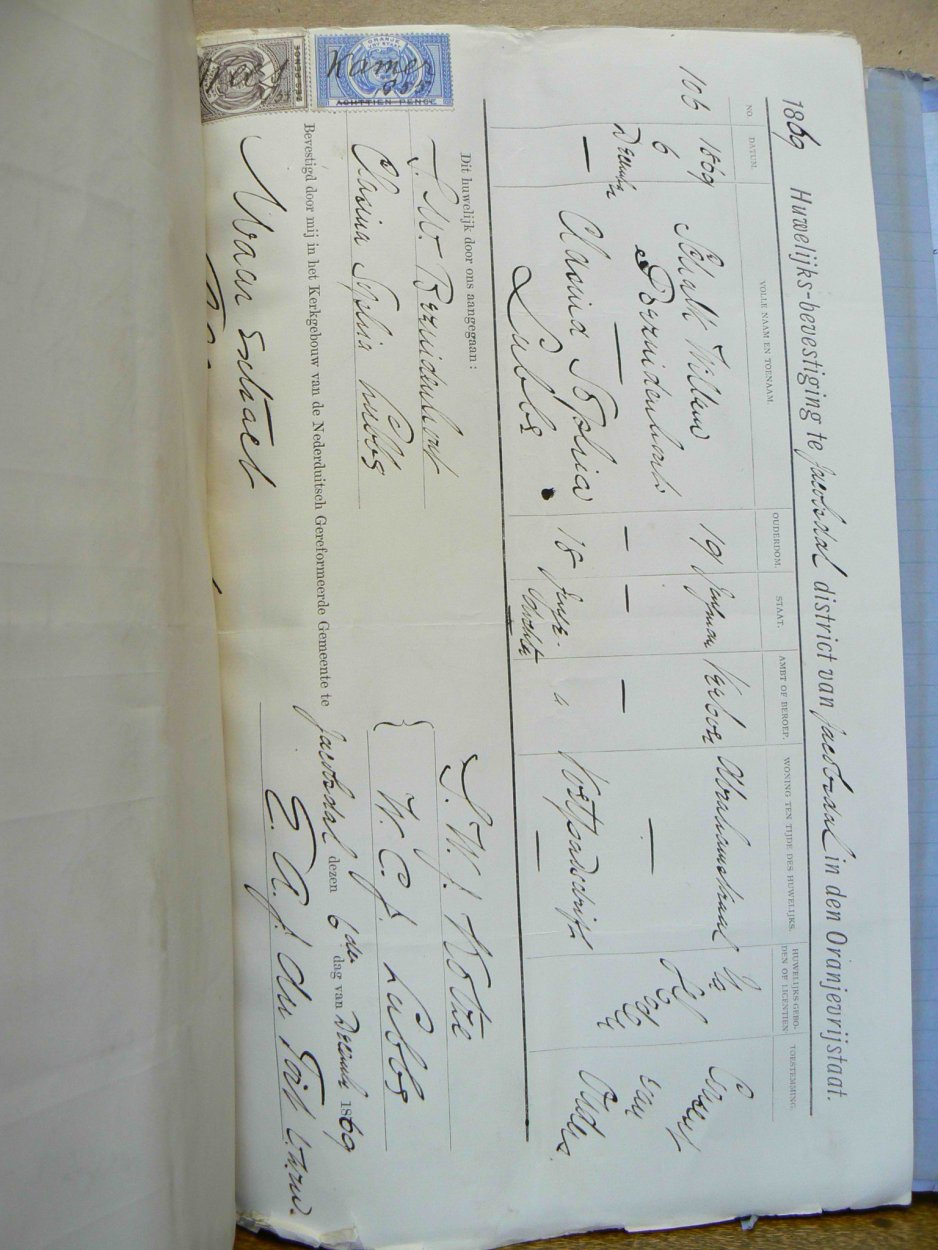 1869 Huwelijks-bevestiging te Jacobsdal district van Jacobsdal in den Oranjevrijstaat.
NO. DATUM. VOLLE NAAM EN TOENAAM. OUDERDOM. STAAT. AMBT OF BEROEP. WONING TEN TIJDE DES HUWELIJKS. HUWELIJKS-GEBODEN OF LICENTIEN TOESTEMMING.
106 1869 Schalk Willem 19 Jongman Abrahamskraal
6 Bezuidenhout
December
Clasina Sophia 18 Jonge- Ouders
Lubbe dochter
Dit huwelijk door ons aangegaan:
S. W. Bezuidenhout S. W. J. Kotze
Clasina Sophia Lubbe W. C. J. Lubbe
Bevestigd door mij in het Kerkgebouw van de Nederduitsch Gereformeerde Gemeente te Jacobsdal dezen 6de dag van Decemb 1869
Waar Extract E. A. J. du Toit
ORANJE
VRY STAAT
ACHTTIEN PENCE